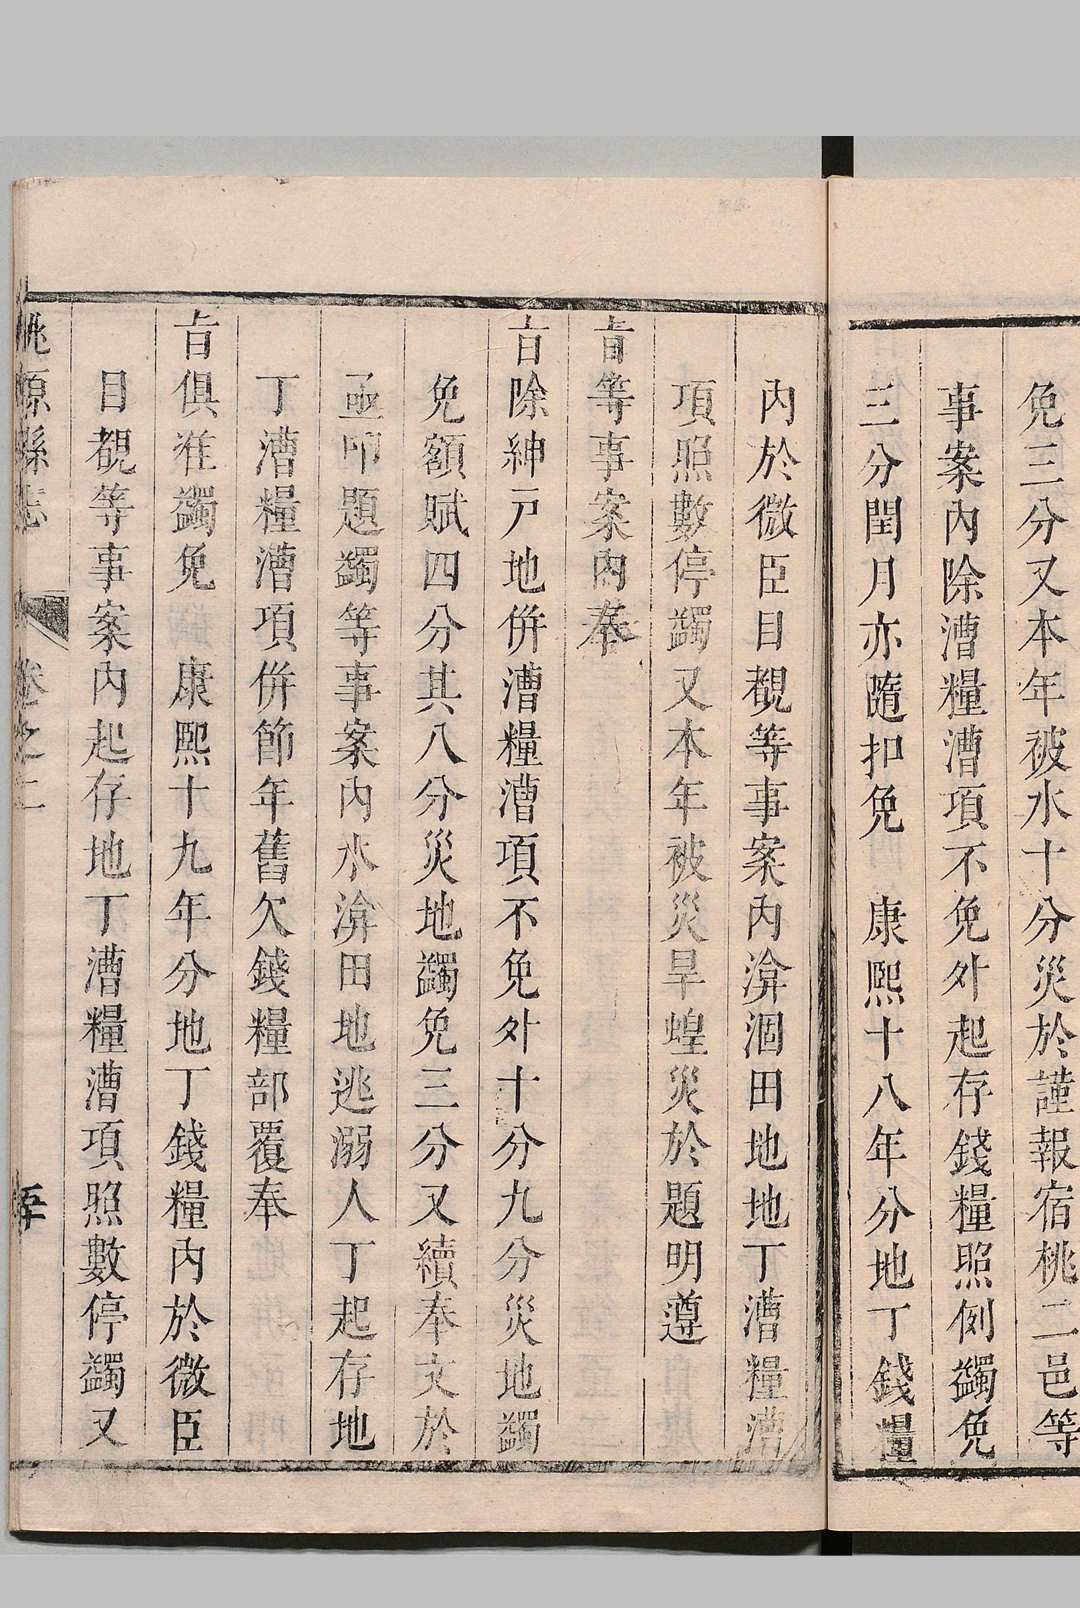 免三分又本年被水十分災於謹報宿桃二邑等
事案內除漕糧漕項不免外起存錢糧照例蠲免
三分閏月亦隨扣免　康熙十八年分地丁錢糧
內於微臣目覩等事案內渰涸田地地丁漕糧漕
項照數停蠲又本年被災旱蝗災於題明遵
旨等事案內奉
旨除紳戸地併漕糧漕項不免外十分九分災地蠲
免額賦四分其八分災地蠲免三分又續奉文於
亟叩題蠲等事案內水渰田地逃溺人丁起存地
丁漕糧漕項併節年舊欠錢糧部覆奉
旨俱准蠲免　康熙十九年分地丁錢糧內於微臣
目覩等事案內起存地丁漕糧漕項照數停蠲又
桃源縣志　卷之二